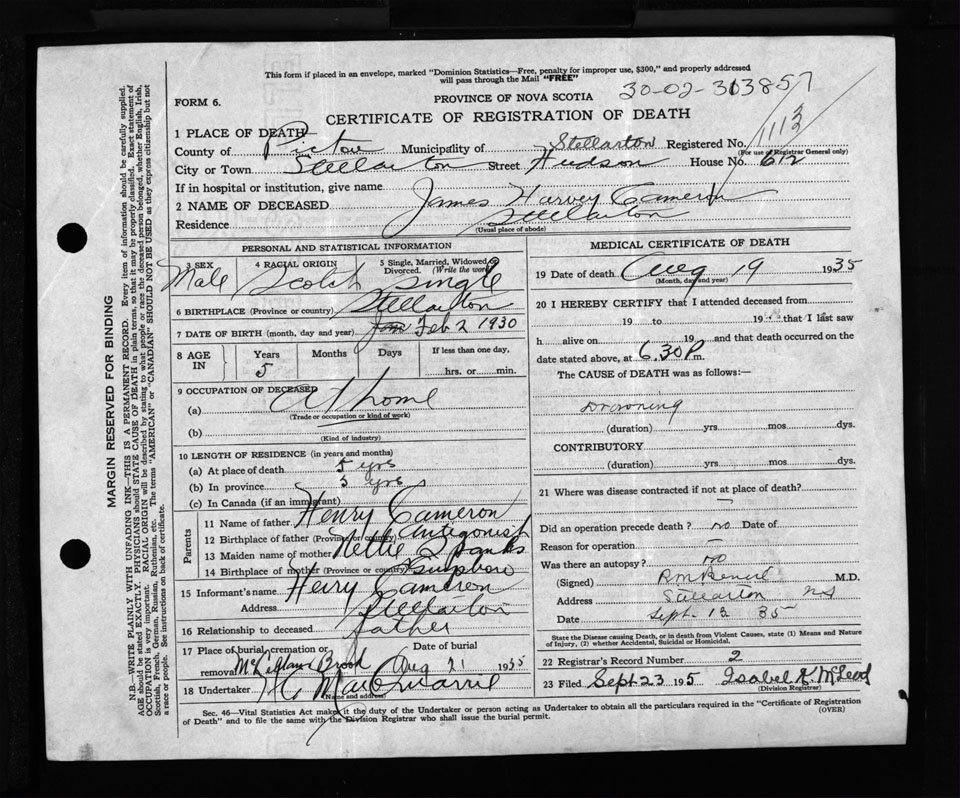 This form if placed in an envelope, marked "Dominion Statistics—Free, penalty for improper use, $300," and properly addressed
will pass through the Mail "FREE"
30-02-313857
FORM 6.
PROVINCE OF NOVA SCOTIA
CERTIFICATE OF REGISTRATION OF DEATH
1113
1 PLACE OF DEATH
County of Pictou Municipality of Stellarton Registered No.
(For use of Registrar General only)
City or Town Stellarton Street Hudson House No. 612
If in hospital or institution, give name
2 NAME OF DECEASED James Harvey Cameron
Residence Stellarton
(Usual place of abode)
PERSONAL AND STATISTICAL INFORMATION
3 SEX 4 RACIAL ORIGIN 5 Single, Married, Widowed
Divorced. (Write the word)
Male Scotch Single
6 BIRTHPLACE (Province or country) Stellarton
7 DATE OF BIRTH (month, day and year) Feb 2 1930
8 AGE IN Years Months Days If less than one day,
5 hrs. or min.
9 OCCUPATION OF DECEASED
(a) At home
(Trade or occupation or kind of work)
(b)
(Kind of industry)
10 LENGTH OF RESIDENCE (in years and months)
(a) At place of death 5 yrs
(b) In province 5 yrs
(c) In Canada (if an immigrant)
Parents
11 Name of father Henry Cameron
12 Birthplace of father (Province or country) Antigonish
13 Maiden name of mother Nettie
14 Birthplace of mother (Province or country)
15 Informant's name Henry Cameron
Address Stellarton
16 Relationship to deceased father
17 Place of burial, cremation or Date of burial
removal McLellans Brook Aug 21 1935
18 Undertaker
(Name and address)
MEDICAL CERTIFICATE OF DEATH
19 Date of death Aug 19 1935
(Month, day and year)
20 I HEREBY CERTIFY that I attended deceased from
19 to 19 that I last saw
h alive on 19 and that death occurred on the
date stated above, at 6.30 P m.
The CAUSE of DEATH was as follows:—
Drowning
(duration) yrs mos dys.
CONTRIBUTORY
(duration) yrs mos dys.
21 Where was disease contracted if not at place of death?
—
Did an operation precede death? no Date of
Reason for operation —
Was there an autopsy? no
(Signed) M.D.
Address Stellarton NS
Date Sept. 13 35
State the Disease causing Death, or in death from Violent Causes, state (1) Means and Nature
of Injury, (2) whether Accidental, Suicidal or Homicidal.
22 Registrar's Record Number 2
23 Filed Sept 23 1935 Isabel K. McLeod
(Division Registrar)
Sec. 46—Vital Statistics Act makes it the duty of the Undertaker or person acting as Undertaker to obtain all the particulars required in the "Certificate of Registration
of Death" and to file the same with the Division Registrar who shall issue the burial permit. (OVER)
MARGIN RESERVED FOR BINDING
N.B. WRITE PLAINLY WITH UNFADING INK—THIS IS A PERMANENT RECORD. Every item of information should be carefully supplied.
AGE should be stated EXACTLY. PHYSICIANS should STATE CAUSE OF DEATH in plain terms, so that it may be properly classified. Exact statement of
OCCUPATION is very important. RACIAL ORIGIN will be described by stating to what people or race the deceased person belonged, whether English, Irish,
Scottish, French, German, Russian, Ruthenian, etc. The terms "AMERICAN" or "CANADIAN" SHOULD NOT BE USED as they express citizenship but not
a race or people. See instructions on back of certificate.